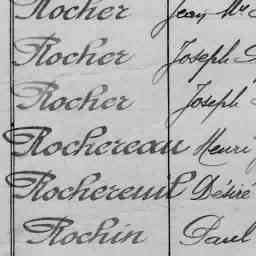 Rocher Jean Mie
Rocher Joseph
Rocher Joseph
Rochereau Henri
Rochereuil Désiré
Rochin Paul